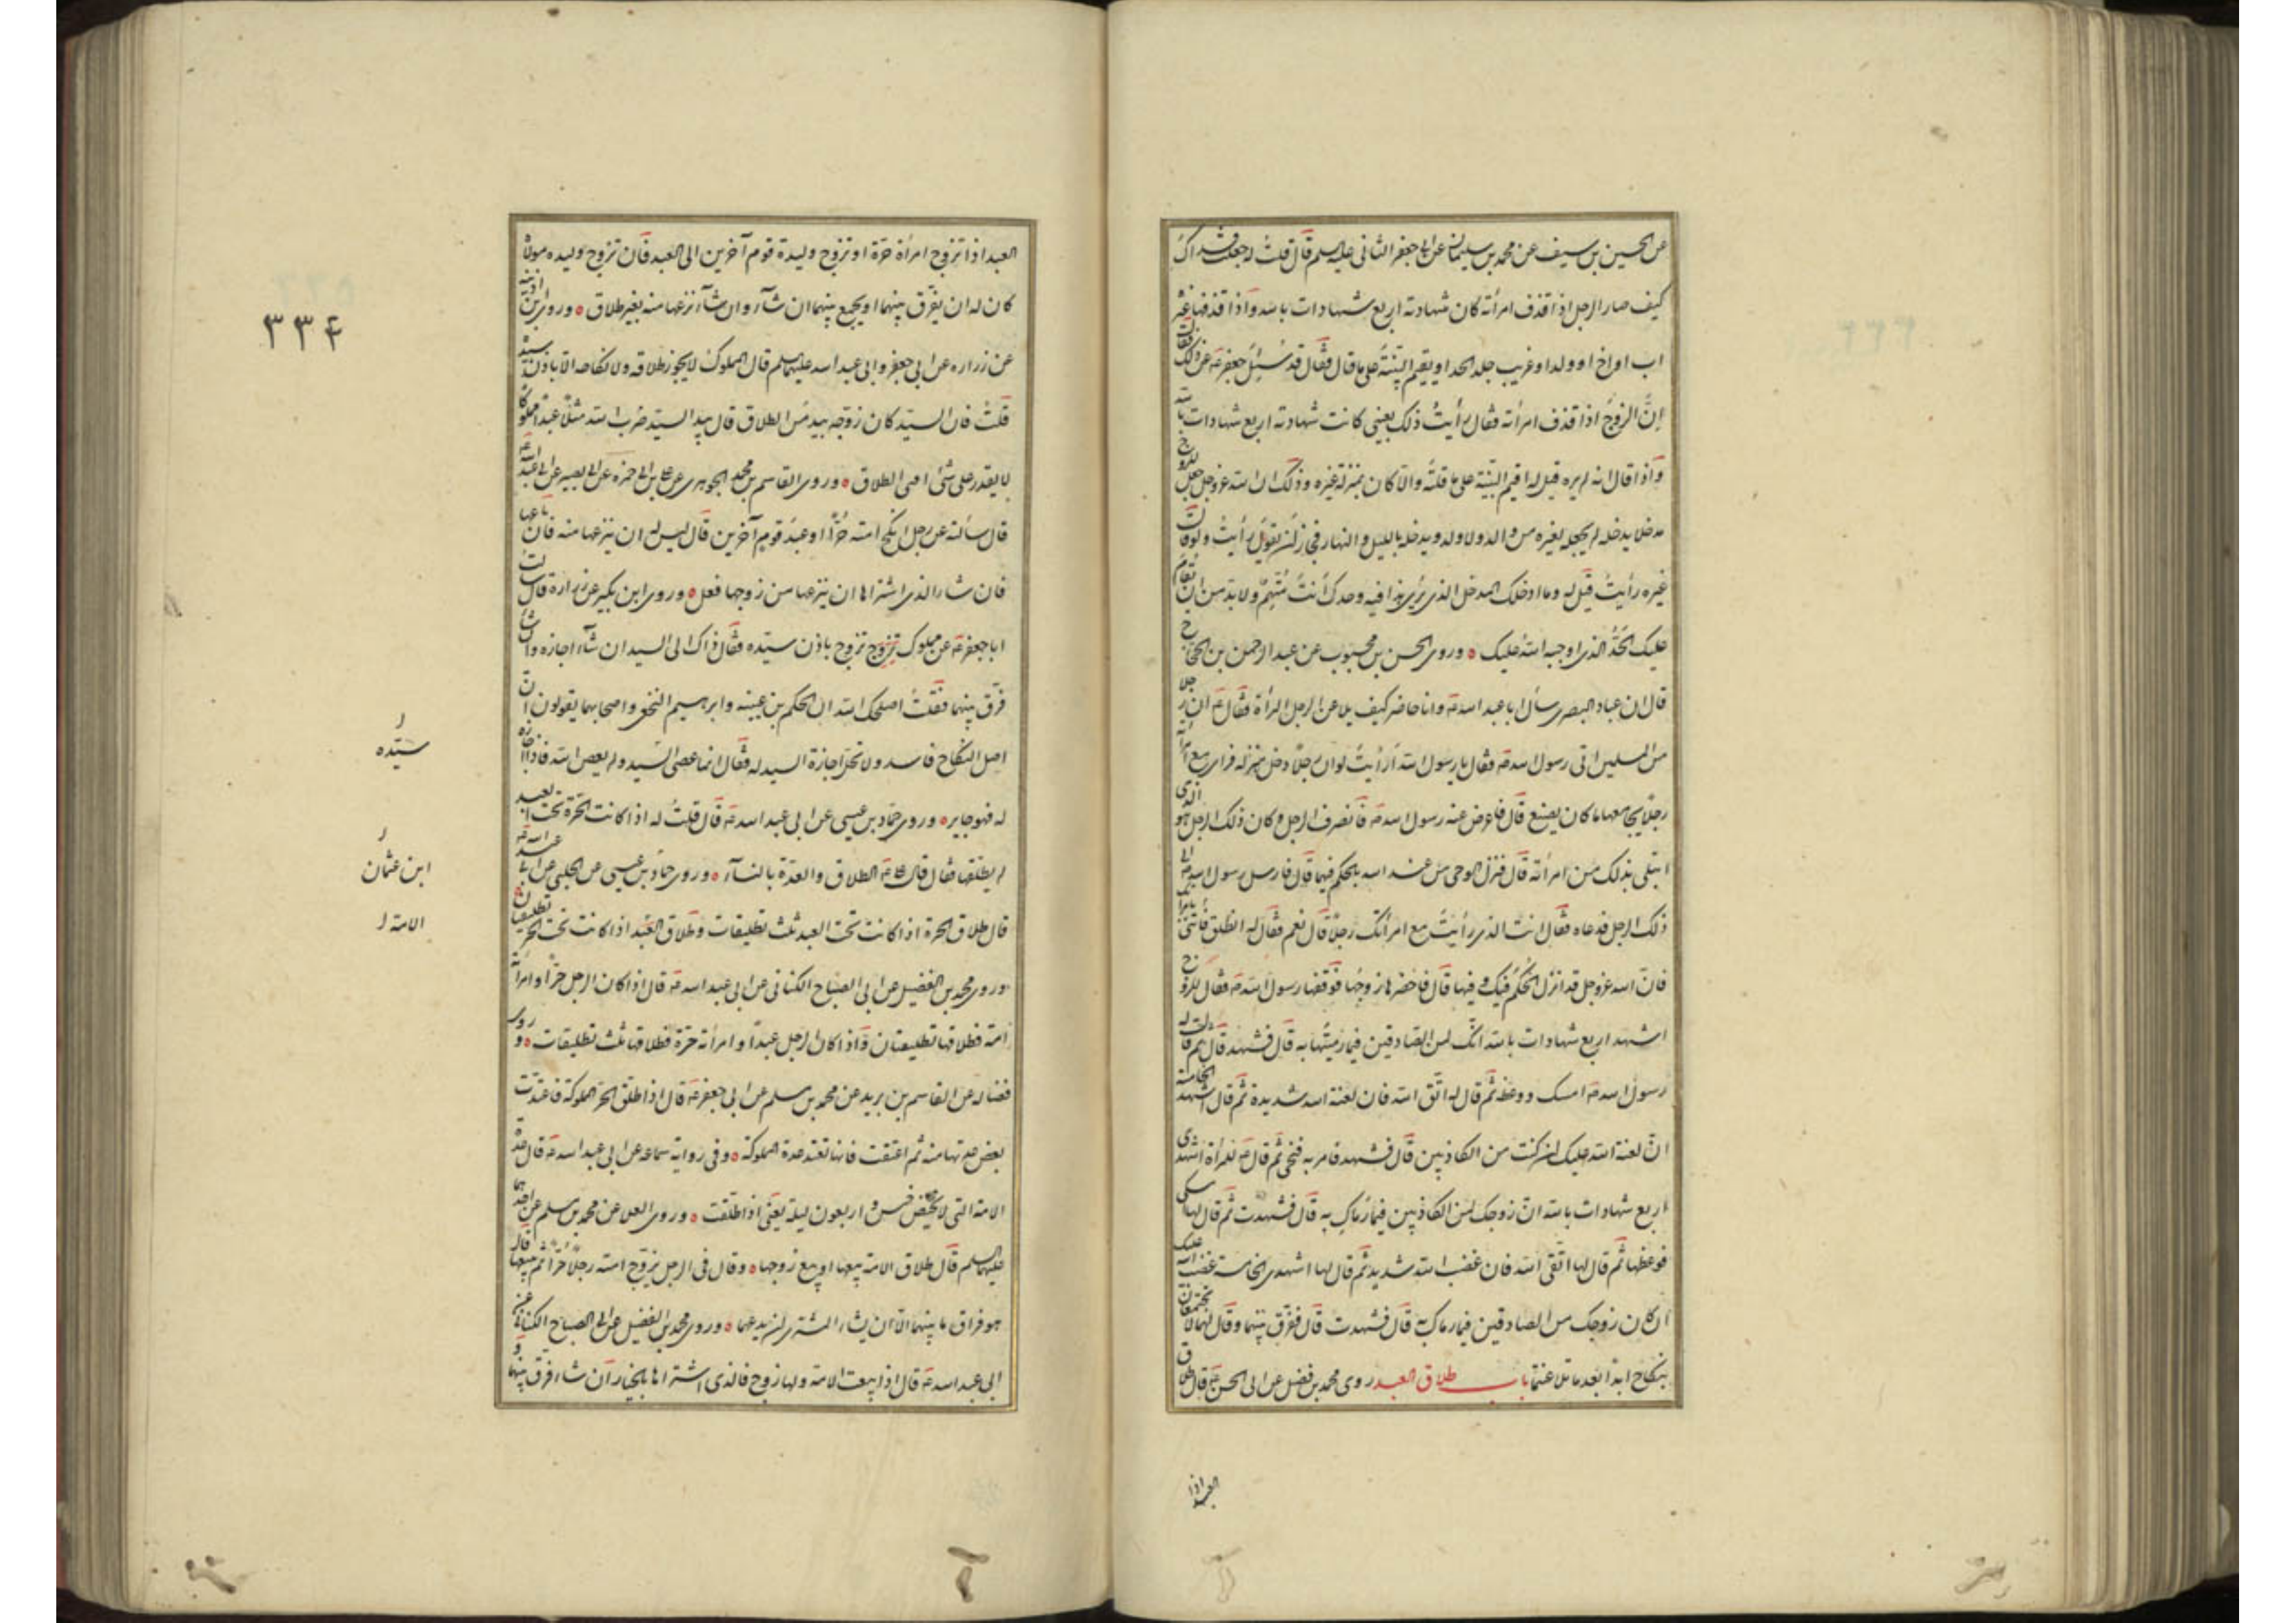 عن الحسين بن سيف عن محمد بن سليمان عن ابي جعفر الثاني عليه السلم قال قلتُ له جعلت فداك
كيف صار الرجل اذا قذف امرأته كان شهادته اربع شهادات بالله واذا قذفها غيره
اب او اخ او ولد او غريب جلد الحد او يقيم البيّنة على ما قال فقال قد سُئِلَ جعفر عه عن ذلك فقال
اِنَّ الزوجَ اذا قذف امرأته فقال رأيتُ ذلك بعيني كانت شهادته اربع شهادات بالله
واذا قال انه لم يره قيل له اقيم البيّنة على ما قلتَه والّا كان بمنزلة غيره وذلك ان الله عز وجل جعل للزوج
مدخلا يدخله لم يجعله لغيره من والد ولا ولد ويدخله بالليل والنهار فجاز له ان يقول رأيتُ ولو قال
غيره رأيتُ قيل له وما ادخلك المدخل الذي ترى هذا فيه وحدك اَنتَ مُتّهمٌ ولا بد من ان يقام
عليك الحَدُّ الذي اوجبه الله عليك ه وروى الحسن بن محبوب عن عبد الرحمن بن الحجاج
قال ان عباد البصرى سأل ابا عبد الله عه وانا حاضر كيف يلاعن الرجل المرأة فقال عه ان رجلا
من المسلمين اتى رسول الله صه فقال يا رسول الله اَرأيتَ لو ان رجلًا دخل منزله فراى مع امرأته
رجلًا يجامعها ما كان يصنع قال فاعرض عنه رسول الله صه فانصرف الرجل وكان ذلك الرجل هو الذى
ابتلى بذلك من امرأته قال فنزل الوحى من عند الله بالحكم فيها قال فارسل رسول الله صه الى
ذلك الرجل فدعاه فقال انت الذى رأيتَ مع امرأتك رجلًا قال نعم فقال له انطلق فأتنى بامرأتك
فان الله عز وجل قد انزل الحُكمَ فيك وفيها قال فاحضرها زوجُها فوقفها رسول الله صه فقال للزوج
اشهد اربع شهادات بالله انّك لمن الصادقين فيما رميتَها به قال فشهد قال ثم قال له
رسول الله صه امسك ووعظه ثم قال له اتّق الله فان لعنة الله شديدة ثم قال اشهد الخامسة
انّ لعنة الله عليك ان كنت من الكاذبين قال فشهد فامر به فنحّى ثم قال عه للمرأة اشهدى
اربع شهادات بالله ان زوجك لمن الكاذبين فيما رماكِ به قال فشهدت ثم قال لها امسكى
فوعظها ثم قال لها اتّقى الله فان غضب الله شديد ثم قال لها اشهدى الخامسة ان غضب الله عليك
ان كان زوجك من الصادقين فيما رماك به قال فشهدت قال ففرّق بينهما وقال لهما لا تجتمعان
بنكاح ابدا بعد ما تلاعنتما باب طلاق العبد روى محمد بن فضيل عن ابى الحسن عه قال طلاق
العبد اذا
العبد اذا تزوج امرأة حرّة او تزوج وليدة قوم آخرين الى العبد فان تزوج وليده مولاه
كان له ان يفرّق بينهما او يجمع بينهما ان شآء وان شآء نزعها منه بغير طلاق ه وروى ابن اذينه
عن زراره عن ابى جعفر وابى عبد الله عليهما السلم قال المملوك لا يجوز طلاقه ولا نكاحه الّا باذن سيده
قلتُ فان السيد كان زوّجه بيد مَن الطلاق قال بيد السيّد ضرب الله مثلًا عبدًا مملوكًا
لا يقدر على شئ افشئ الطلاق ه وروى القاسم بن محمد الجوهرى عن على بن ابى حمزه عن ابى بصير عن ابى عبد الله عه
قال سألته عن رجل انكح امته حُرًّا او عبدَ قوم آخرين قال ليس له ان ينزعها منه فان باعها
فان شاء الذى اشتراها ان ينزعها من زوجها فعل ه وروى ابن بكير عن زرارة قال سالت
ابا جعفر عه عن مملوك تزوج تزوج باذن سيّده فقال ذاك الى السيد ان شآء اجازه وان شاء
فرّق بينهما فقلتُ اصلحك الله ان الحكم بن عيينه وابرهيم النخعى واصحابهما يقولون ان
اصل النكاح فاسد ولا تحل اجازة السيد له فقال انما عصى السّيد ولم يعص الله فاذا اجازه
له فهو جايز ه وروى حمّاد بن عيسى عن ابى عبد الله عه قال قلتُ له اذا كانت الحرّة تحت العبد
لم يطلقها فقال قال على عه الطلاق والعدّة بالنسآء ه وروى حماد بن عيسى عن الحلبى عن ابى عبد الله عه
قال طلاق الحرة اذا كانت تحت العبد ثلث تطليقات وطلاق العَبْد اذا كانت تحت الحر تطليقتان ه
وروى محمد بن الفضيل عن ابى الصباح الكنانى عن ابى عبد الله عه قال اذا كان الرجل حرّا وامرأته
امة فطلاقها تطليقتان واذا كان الرجل عبدًا وامرأته حرّة فطلاقها ثلث تطليقات ه وروى
فضاله عن القاسم بن بريد عن محمد بن مسلم عن ابى جعفر عه قال اذا طلّق الحُر المملوكة فاعتدّت
بعض عدتها منه ثم اعتقت فانها تعتد عدة المملوكة ه وفى رواية سماعه عن ابى عبد الله عه قال عدّة
الامة التى لا تحيض خمس واربعون ليلة يعنى اذا طلّقت ه وروى العلا عن محمد بن مسلم عن احدهما
عليهما السلم قال طلاق الامة بيعها او بيع زوجها ه وقال فى الرجل يزوّج امته رجلًا حُرًّا ثم يبيعها قال
هو فراق ما بينهما الّا ان يشاء المشترى ان يدعهما ه وروى محمد بن الفضيل عن ابى الصباح الكنانى عن
ابى عبد الله عه قال اذا بيعت الامة ولها زوج فالذى اشتراها بالخيار ان شاء فرّق بينهما و
٣٣٤
سيّده
ابن عثمان
الامة